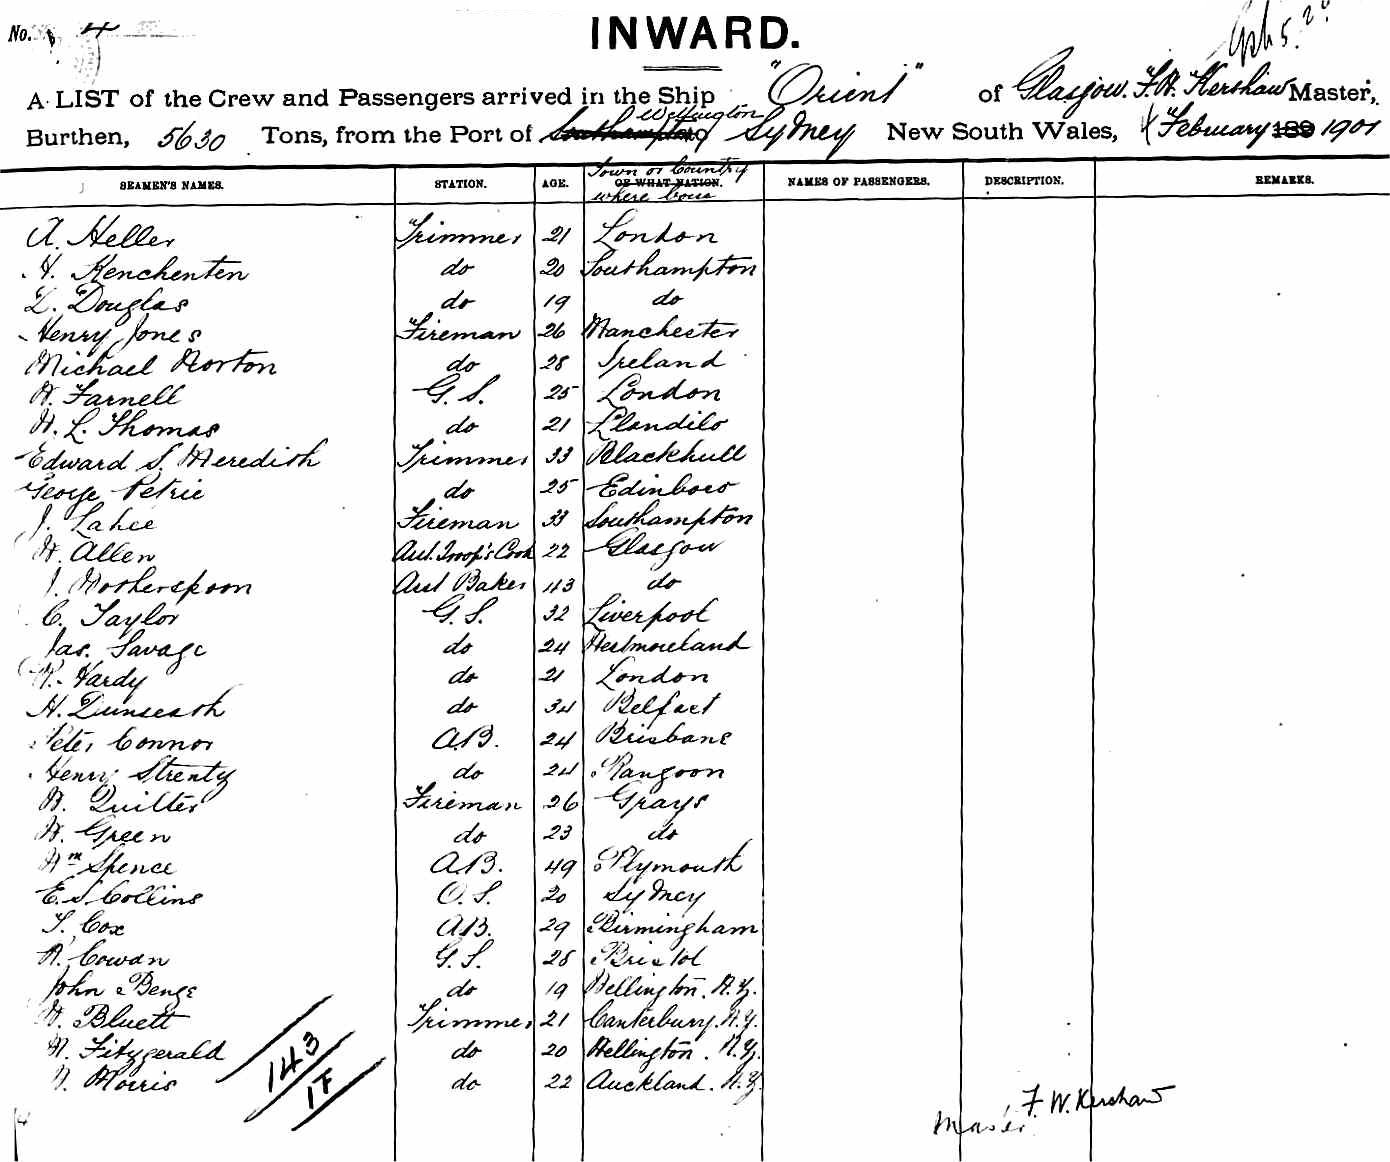 No. 4
INWARD.
A LIST of the Crew and Passengers arrived in the Ship "Orient" of Glasgow. F. W. Kershaw Master,
Wellington
Burthen, 5630 Tons, from the Port of Southampton to Sydney New South Wales, 4 February 189 1901
Town or Country
SEAMEN'S NAMES. STATION. AGE. OF WHAT NATION. NAMES OF PASSENGERS. DESCRIPTION. REMARKS.
where born
A. Heller Trimmer 21 London
H. Kenchenten do 20 Southampton
D. Douglas do 19 do
Henry Jones Fireman 26 Manchester
Michael Norton do 28 Ireland
W. Farnell G. S. 25 London
W. L. Thomas do 21 Llandilo
Edward S. Meredith Trimmer 33 Blackhull
George Petrie do 25 Edinboro
J. Lahee Fireman 33 Southampton
W. Allen Ast. Troop's Cook 22 Glasgow
J. Wotherspoon Asst Baker 43 do
C. Taylor G. S. 32 Liverpool
Jas. Savage do 24 Westmoreland
R. Hardy do 21 London
H. Dunseath do 34 Belfast
Peter Connor A.B. 24 Brisbane
Henry Strenty do 24 Rangoon
W. Quilter Fireman 26 Grays
W. Green do 23 do
Wm Spence A.B. 49 Plymouth
E. S. Collins O. S. 20 Sydney
T. Cox A.B. 29 Birmingham
Cowan G. S. 28 Bristol
John Benge do 19 Wellington. N.Z.
W. Bluett Trimmer 21 Canterbury. N.Z.
Fitzgerald do 20 Wellington. N.Z.
Morris do 22 Auckland. N.Z.
143
17
F. W. Kershaw
Master